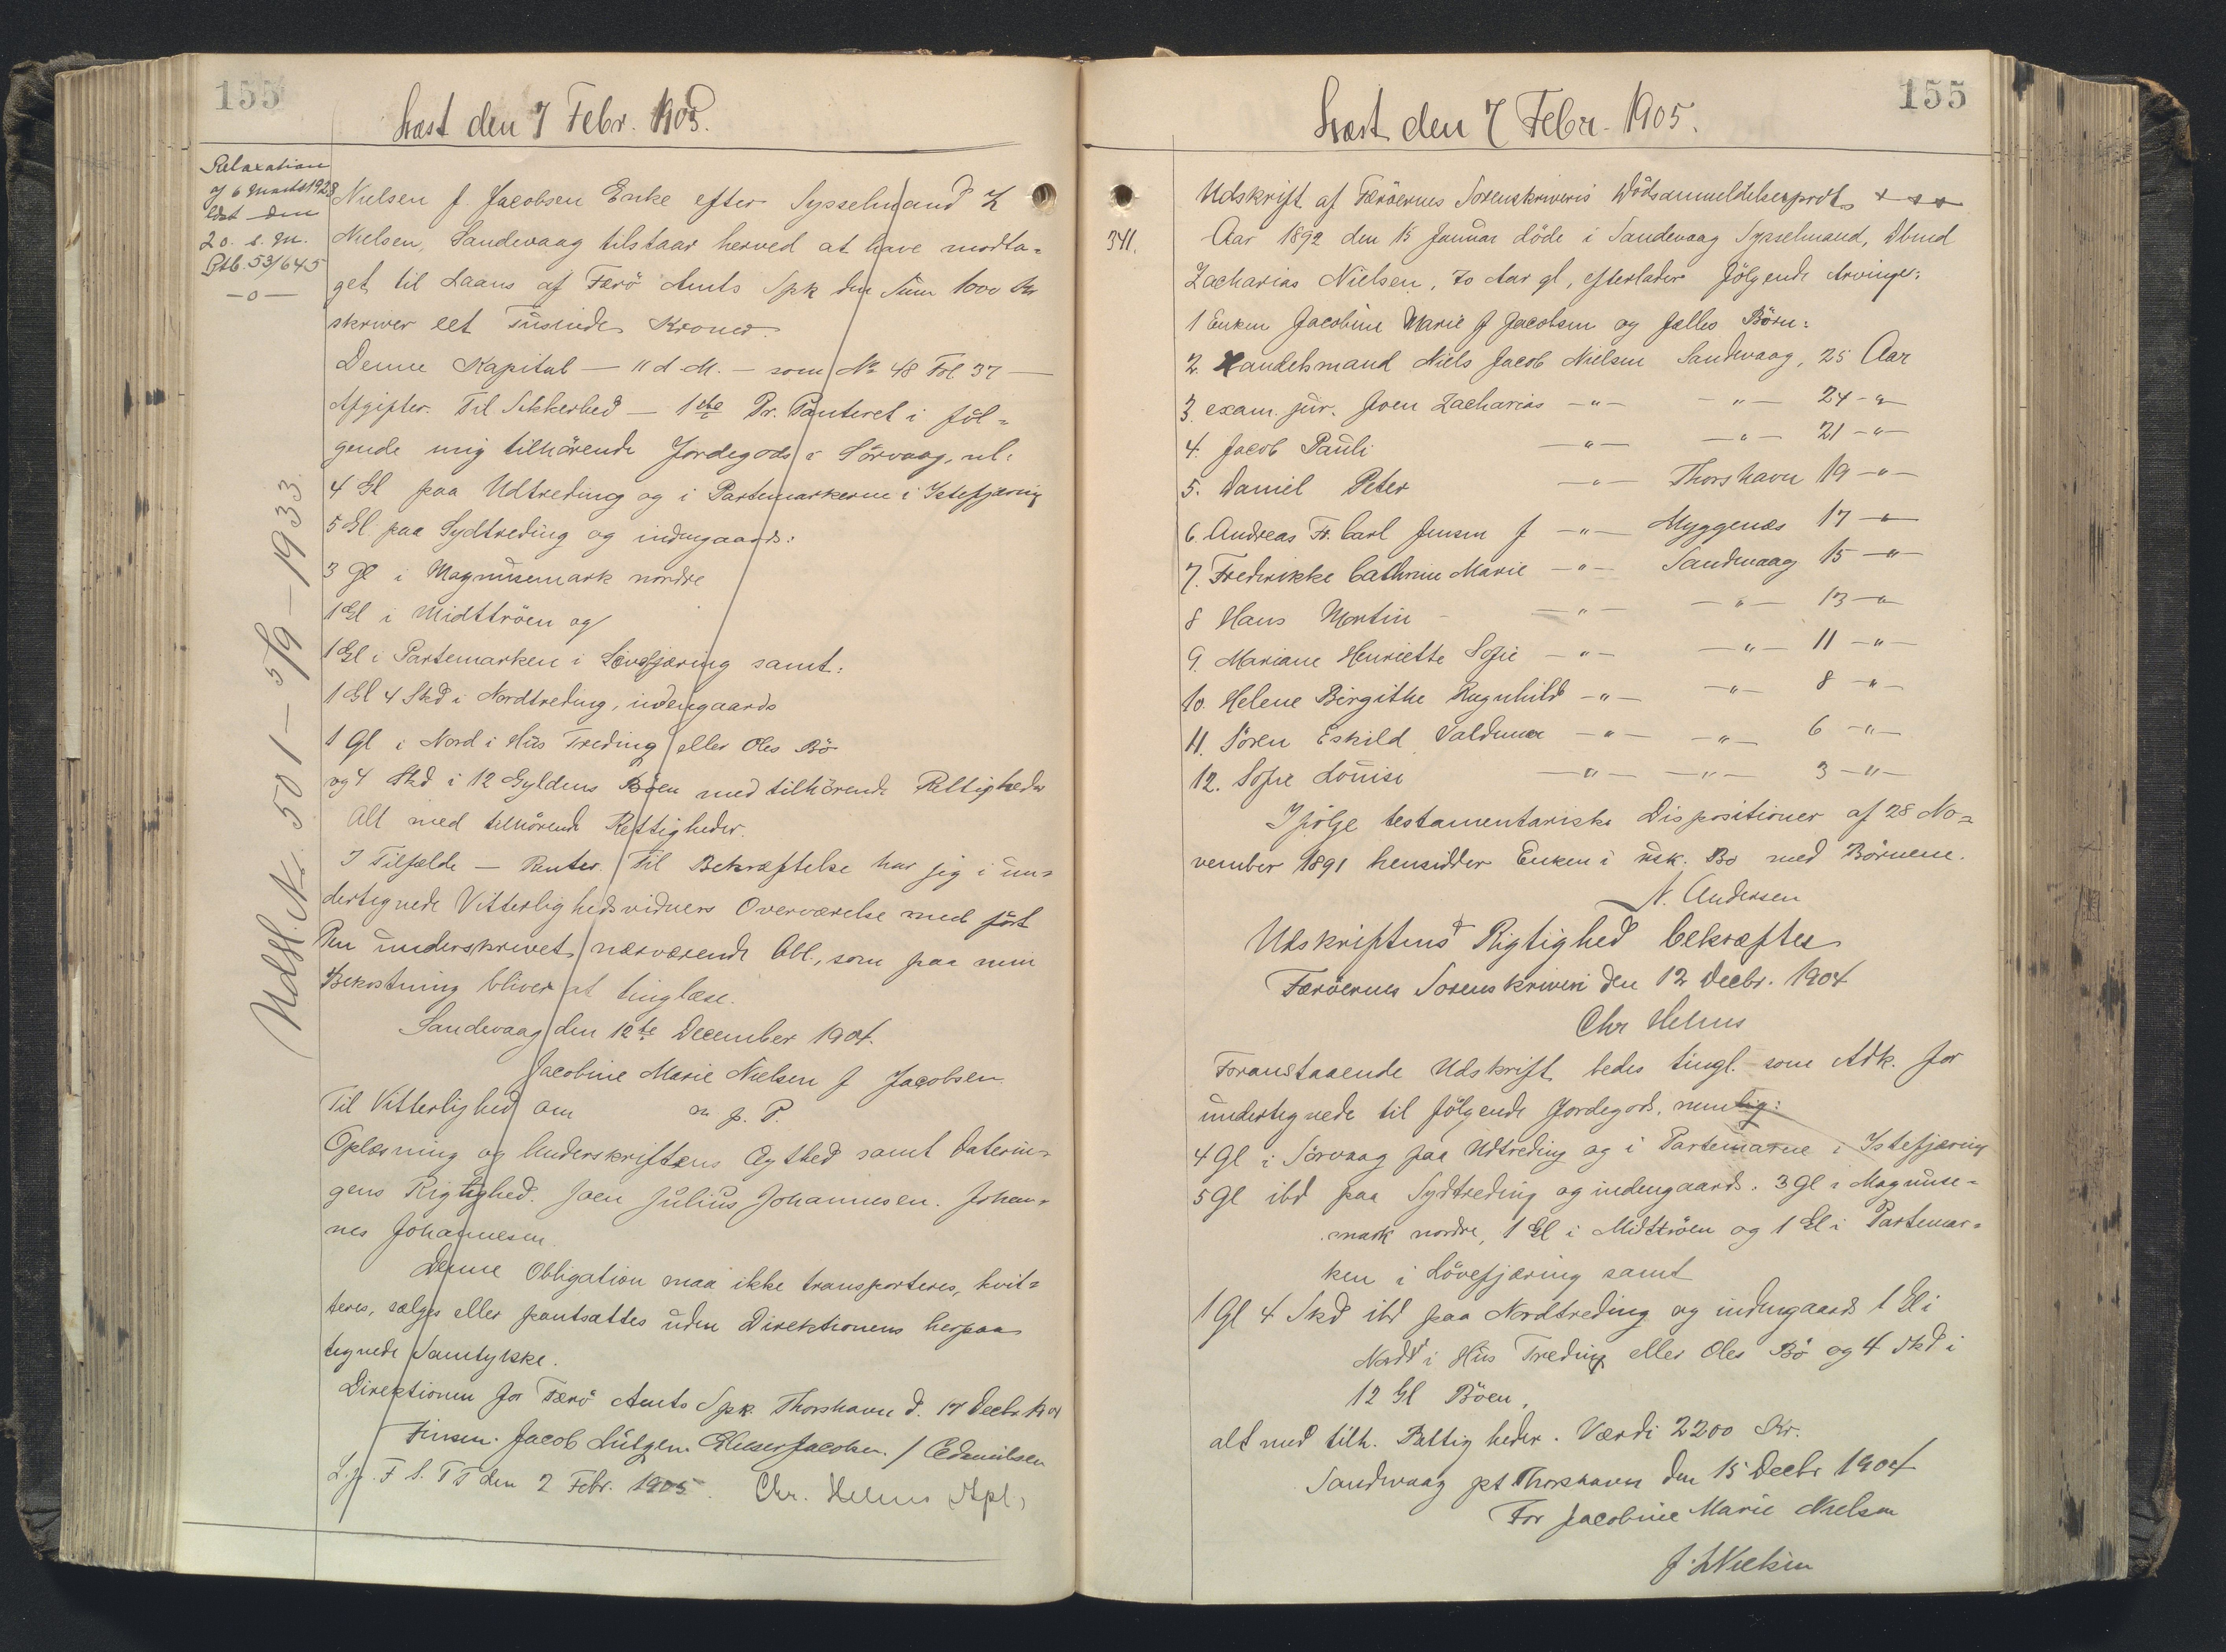 155
Læst den 7 Febr. 1905.
Relaxation
af 6 Marts 1923
læst den
20. s. M.
Ptb. 53/645
—o—
Udsl. No. 501 — 5/9 — 1933
Nielsen f. Jacobsen Enke efter Sysselmand Z
Nielsen, Sandevaag tilstaar herved at have modta-
get til Laans af Færö Amts Spk den Sum 1000 Kr
skriver eet Tusinde Kroner.
Denne Kapital — 11 d. M. — som No 48 Fol 37 —
Afgifter. Til Sikkerhed — 1ste Pr. Panteret i föl-
gende mig tilhörende Jordegods i Sörvaag, nl:
4 Gl paa Udtreding og i Partemarkerne i Istefjæring
5 Gl. paa Sydtreding og indengaards:
3 Gl i Magnusemark nordre
1 Gl i Midttröen og
1 Gl i Partemarken i Lövefjæring samt:
1 Gl 4 Skd i Nordtreding, indengaards
1 Gl i Nord i Hüs Treding eller Oles Bö
og 4 Skd i 12 Gyldens Böen med tilhörende Rettigheder
Alt med tilhörende Rettigheder.
I Tilfælde — Renter. Til Bekræftelse har jeg i un-
dertegnede Vitterlighedsvidners Overværelse med fört
Pen underskrevet nærværende Obl., som paa min
Bekostning bliver at tinglæse.
Sandevaag den 12te December 1904.
Jacobine Marie Nielsen f Jacobsen
Til Vitterlighed om m. f. P.
Oplæsning og Underskriftens Ægthed samt Daterin-
gens Rigtighed. Joen Julius Johannesen. Johan-
nes Johannesen
Denne Obligation maa ikke transporteres, kvit-
teres, sælges eller pantsættes uden Direktionens herpaa
tegnede Samtykke.
Direktionen for Færö Amts Spk. Thorshavn d. 17 Decbr. 1904
Finsen. Jacob Lützen. Elieser Jacobsen. / C Danielsen
L. p. F S. T T den 2 Febr. 1905. Chr. Helms Kpl,
155
Læst den 7 Febr. 1905.
Udskrift af Færöernes Sorenskriveris Dödsanmeldelsesprot.
341. Aar 1892 den 15 Januar döde i Sandevaag Sysselmand, Dbmd
Zacharias Nielsen, 70 Aar gl, efterlader fölgende Arvinger:
1 Enken Jacobine Marie f Jacobsen og fælles Börn:
2. Handelsmand Niels Jacob Nielsen Sandevaag, 25 Aar
3. exam. jur. Joen Zacharias —"— —"— 24 —"—
4. Jacob Pauli —"— —"— 21 —"—
5. Daniel Peter —"— Thorshavn 19 —"—
6. Andreas Fr. Carl Jensen f —"— Myggenæs 17 —"—
7. Frederikke Cathrine Marie —"— Sandevaag 15 —"—
8 Hans Martin —"— —"— 13 —"—
9. Mariane Henriette Sofie —"— —"— 11 —"—
10. Helene Birgithe Ragnhild —"— —"— 8 —"—
11. Sören Eskild Valdemar —"— —"— 6 —"—
12. Sofie Louise —"— —"— 3 —"—
Ifölge testamentariske Dispositioner af 28 No-
vember 1891 hensidder Enken i usk. Bo med Börnene.
N. Andersen
Udskriftens Rigtighed bekræftes
Færöernes Sorenskriveri den 12 Decbr. 1904
Chr Helms
Foranstaaende Udskrift bedes tingl. som Adk. for
undertegnede til fölgende Jordegods, nemlig:
4 Gl i Sörvaag paa Udtreding og i Partemarne i Istefjæring
5 Gl ibd paa Sydtreding og indengaards. 3 Gl i Magnuse-
mark nordre, 1 Gl i Midttröen og 1 Gl i Partemar-
ken i Lövefjæring samt
1 Gl 4 Skd ibd paa Nordtreding og indengaards 1 Gl i
Nord i Hüs Treding eller Oles Bö og 4 Skd i
12 Gl Böen,
alt med tilh. Rettigheder. Værdi 2200 Kr.
Sandevaag pt Thorshavn den 15 Decbr 1904
For Jacobine Marie Nielsen
J. Z Nielsen